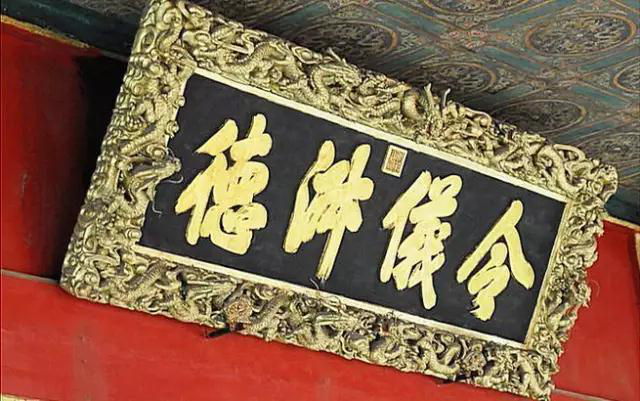 令儀淑德